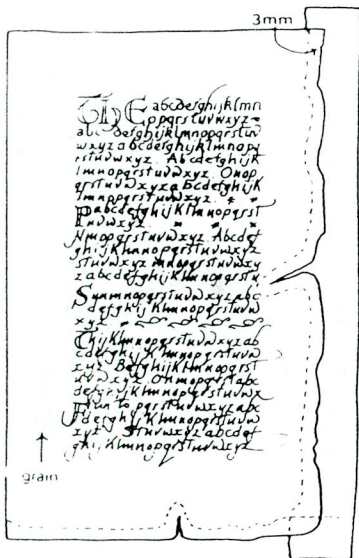 3mm
THE abcdefghijklmn
opqrstuvwxyz
abc defghijklmnopqrstuv
wxyz abcdefghijklmnopq
rstuvwxyz. Abcdefghijk
lmnopqrstuvwxyz. Onop
qrstuvwxyza bcdefghijk
lmnpqrstuvwxyz.
Pabcdefghijklmnopqrst
uvwxyz
Nmopqrstuvwxyz. Abcdef
ghijklmnopqrstuvwxyz
stuvwxyz. mnopqrstuvwxyz
zabcdefghijklmnopqrstu
Synmnopqrstuvwxyzabc
defghijklmnopqrstuvw
xyz
Thijklmnopqrstuvwxyzab
cdefghijklmnopqrstuvw
xyz. Befghijklmnopqrst
uvwxyz. Onmopqrstabx
defghijklmnopqrstuvwx
pqrstuvwxyzabx
defghijklmnopqrstuvw
xyz. Stuvwxyzabcdef
ghijklmnopqrstuvwxyz
grain